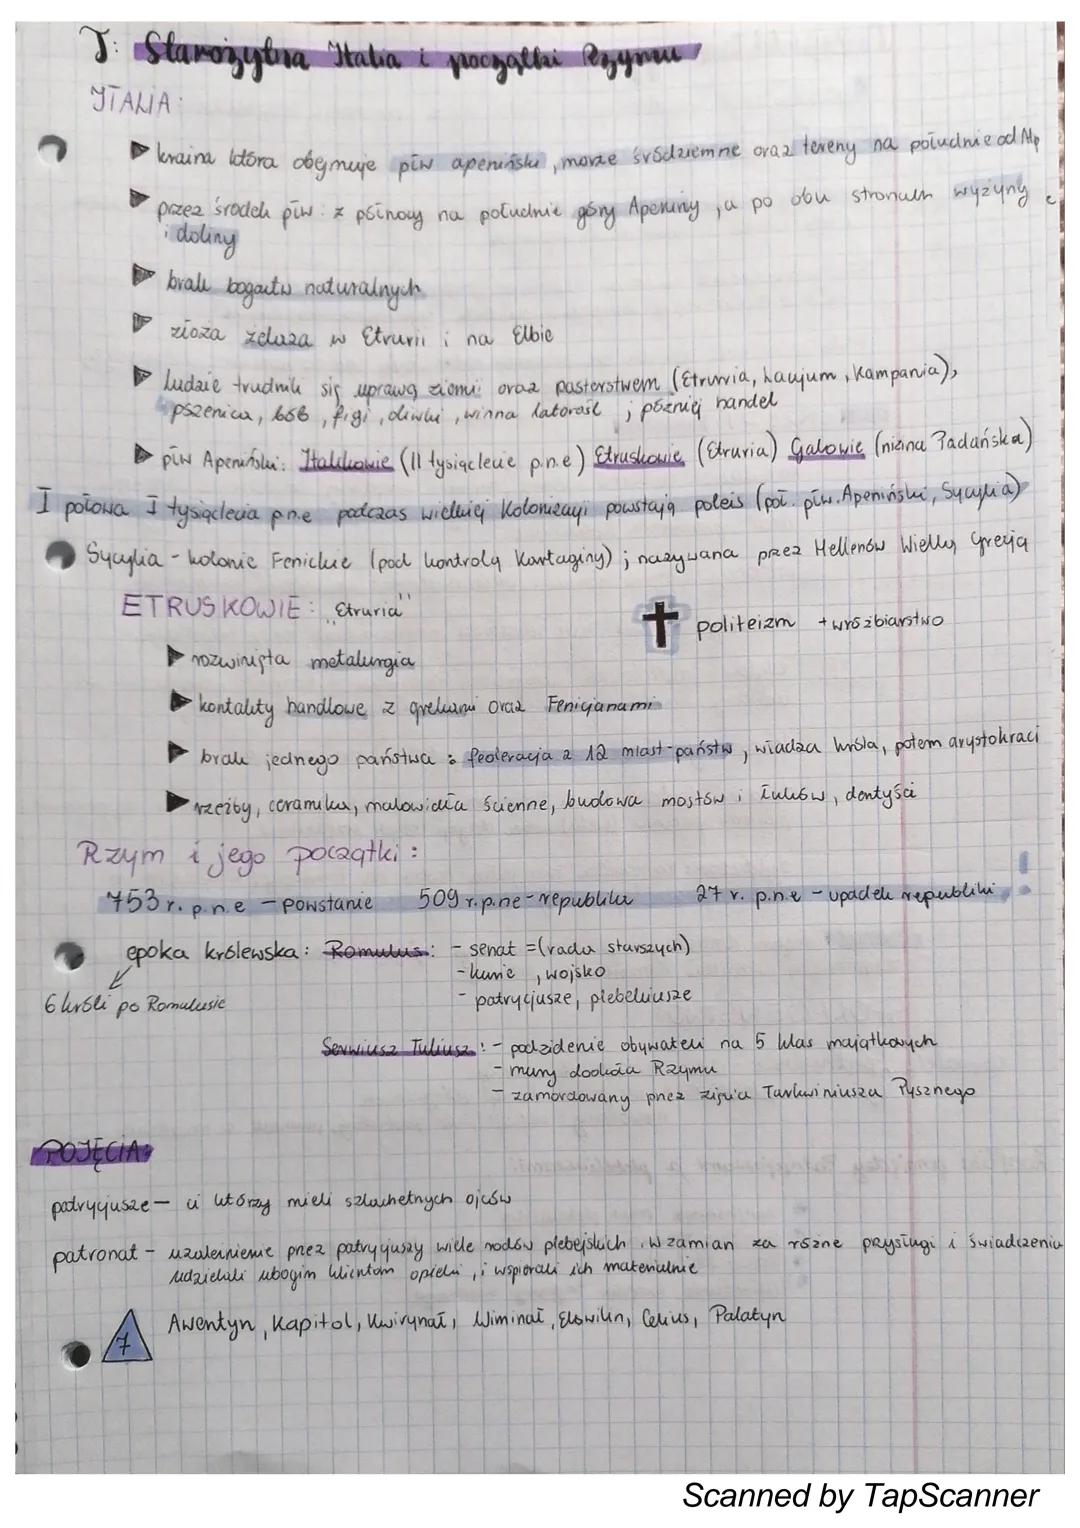 T: Starożytna Italia i początki Rzymu
ITALIA:
▶ kraina która obejmuje płw apeniński, morze śródziemne oraz tereny na południe od Alp
▶ przez środek płw: z północy na południe góry Apeniny, a po obu stronach wyżyny
i doliny
▶ brak bogactw naturalnych
▶ złoża żelaza w Etrurii i na Elbie
▶ ludzie trudnili się uprawą ziemi oraz pasterstwem (Etruria, Lacjum, Kampania),
pszenica, bób, figi, oliwki, winna latorośl ; później handel
▶ płw Apeniński: Italikowie (II tysiąclecie p.n.e) Etruskowie (Etruria) Galowie (nizina Padańska)
I połowa I tysiąclecia p.n.e podczas wielkiej Kolonizacji powstają poleis (poł. płw. Apeniński, Sycylia)
Sycylia - kolonie Fenickie (pod kontrolą Kartaginy) ; nazywana przez Hellenów Wielką Grecją
ETRUSKOWIE: „Etruria"
politeizm + wróżbiarstwo
▶ rozwinięta metalurgia
▶ kontakty handlowe z grekami oraz Fenicjanami
▶ brak jednego państwa : federacja z 12 miast-państw, władza króla, potem arystokracji
▶ rzeźby, ceramika, malowidła ścienne, budowa mostów i łuków, dentyści
Rzym i jego początki :
753 r. p.n.e - powstanie 509 r. p.n.e - republika 27 r. p.n.e - upadek republiki !
epoka królewska: Romulus: - senat = (rada starszych)
- kurie, wojsko
6 króli po Romulusie
- patrycjusze, plebeiusze
Serwiusz Tuliusz: - podzidenie obywateli na 5 klas majątkowych
- mury dookoła Rzymu
- zamordowany przez zięcia Tarkwiniusza Pysznego
POJĘCIA:
patrycjusze - ci którzy mieli szlachetnych ojców
patronat - uzależnienie przez patrycjuszy wiele rodów plebejskich. W zamian za różne przysługi i świadczenia
udzielali ubogim klientom opieki, i wspierali ich materialnie
7 Awentyn, Kapitol, Kwirynał, Wiminał, Eskwilin, Celius, Palatyn
Scanned by TapScanner